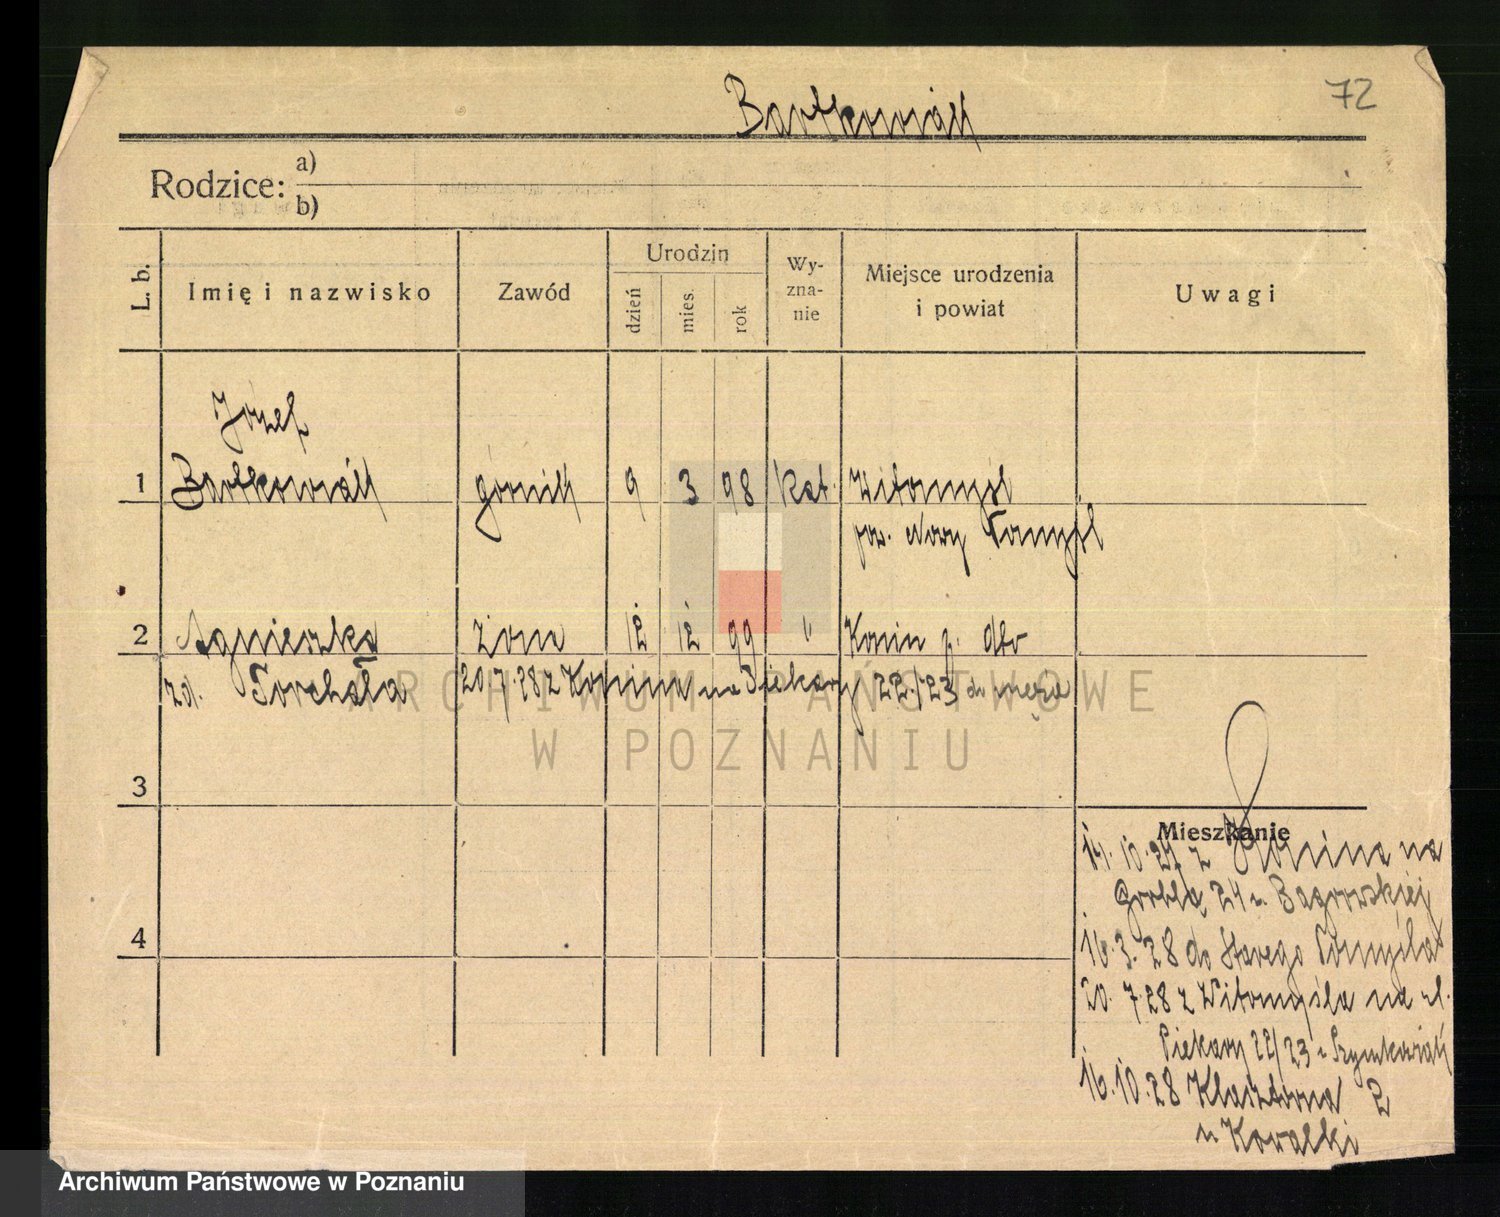 72
Bartkowiak
Rodzice: a)
b)
L. b. Imię i nazwisko Zawód Urodzin dzień mies. rok Wyzna-nie Miejsce urodzenia i powiat Uwagi
Józef
1 Bartkowiak górnik 9 3 98 kat. Witomyśl
pow. Nowy Tomyśl
2 Agnieszka żona 12 12 99 " Konin p. dto
z d. Torchała 20/7.28 z Konina na Piekary 22/23 do męża
3
Mieszkanie
14.10.27 z Konina na
Groblą 24 u Bagrowskiej
4
16.3.28 do Starego Tomyśla
20.7.28 z Witomyśla na ul.
Piekary 22/23 u Szymkowiak
16.10.28 Klasztorna 2
u Kowalki
ARCHIWUM PAŃSTWOWE
W POZNANIU
Archiwum Państwowe w Poznaniu